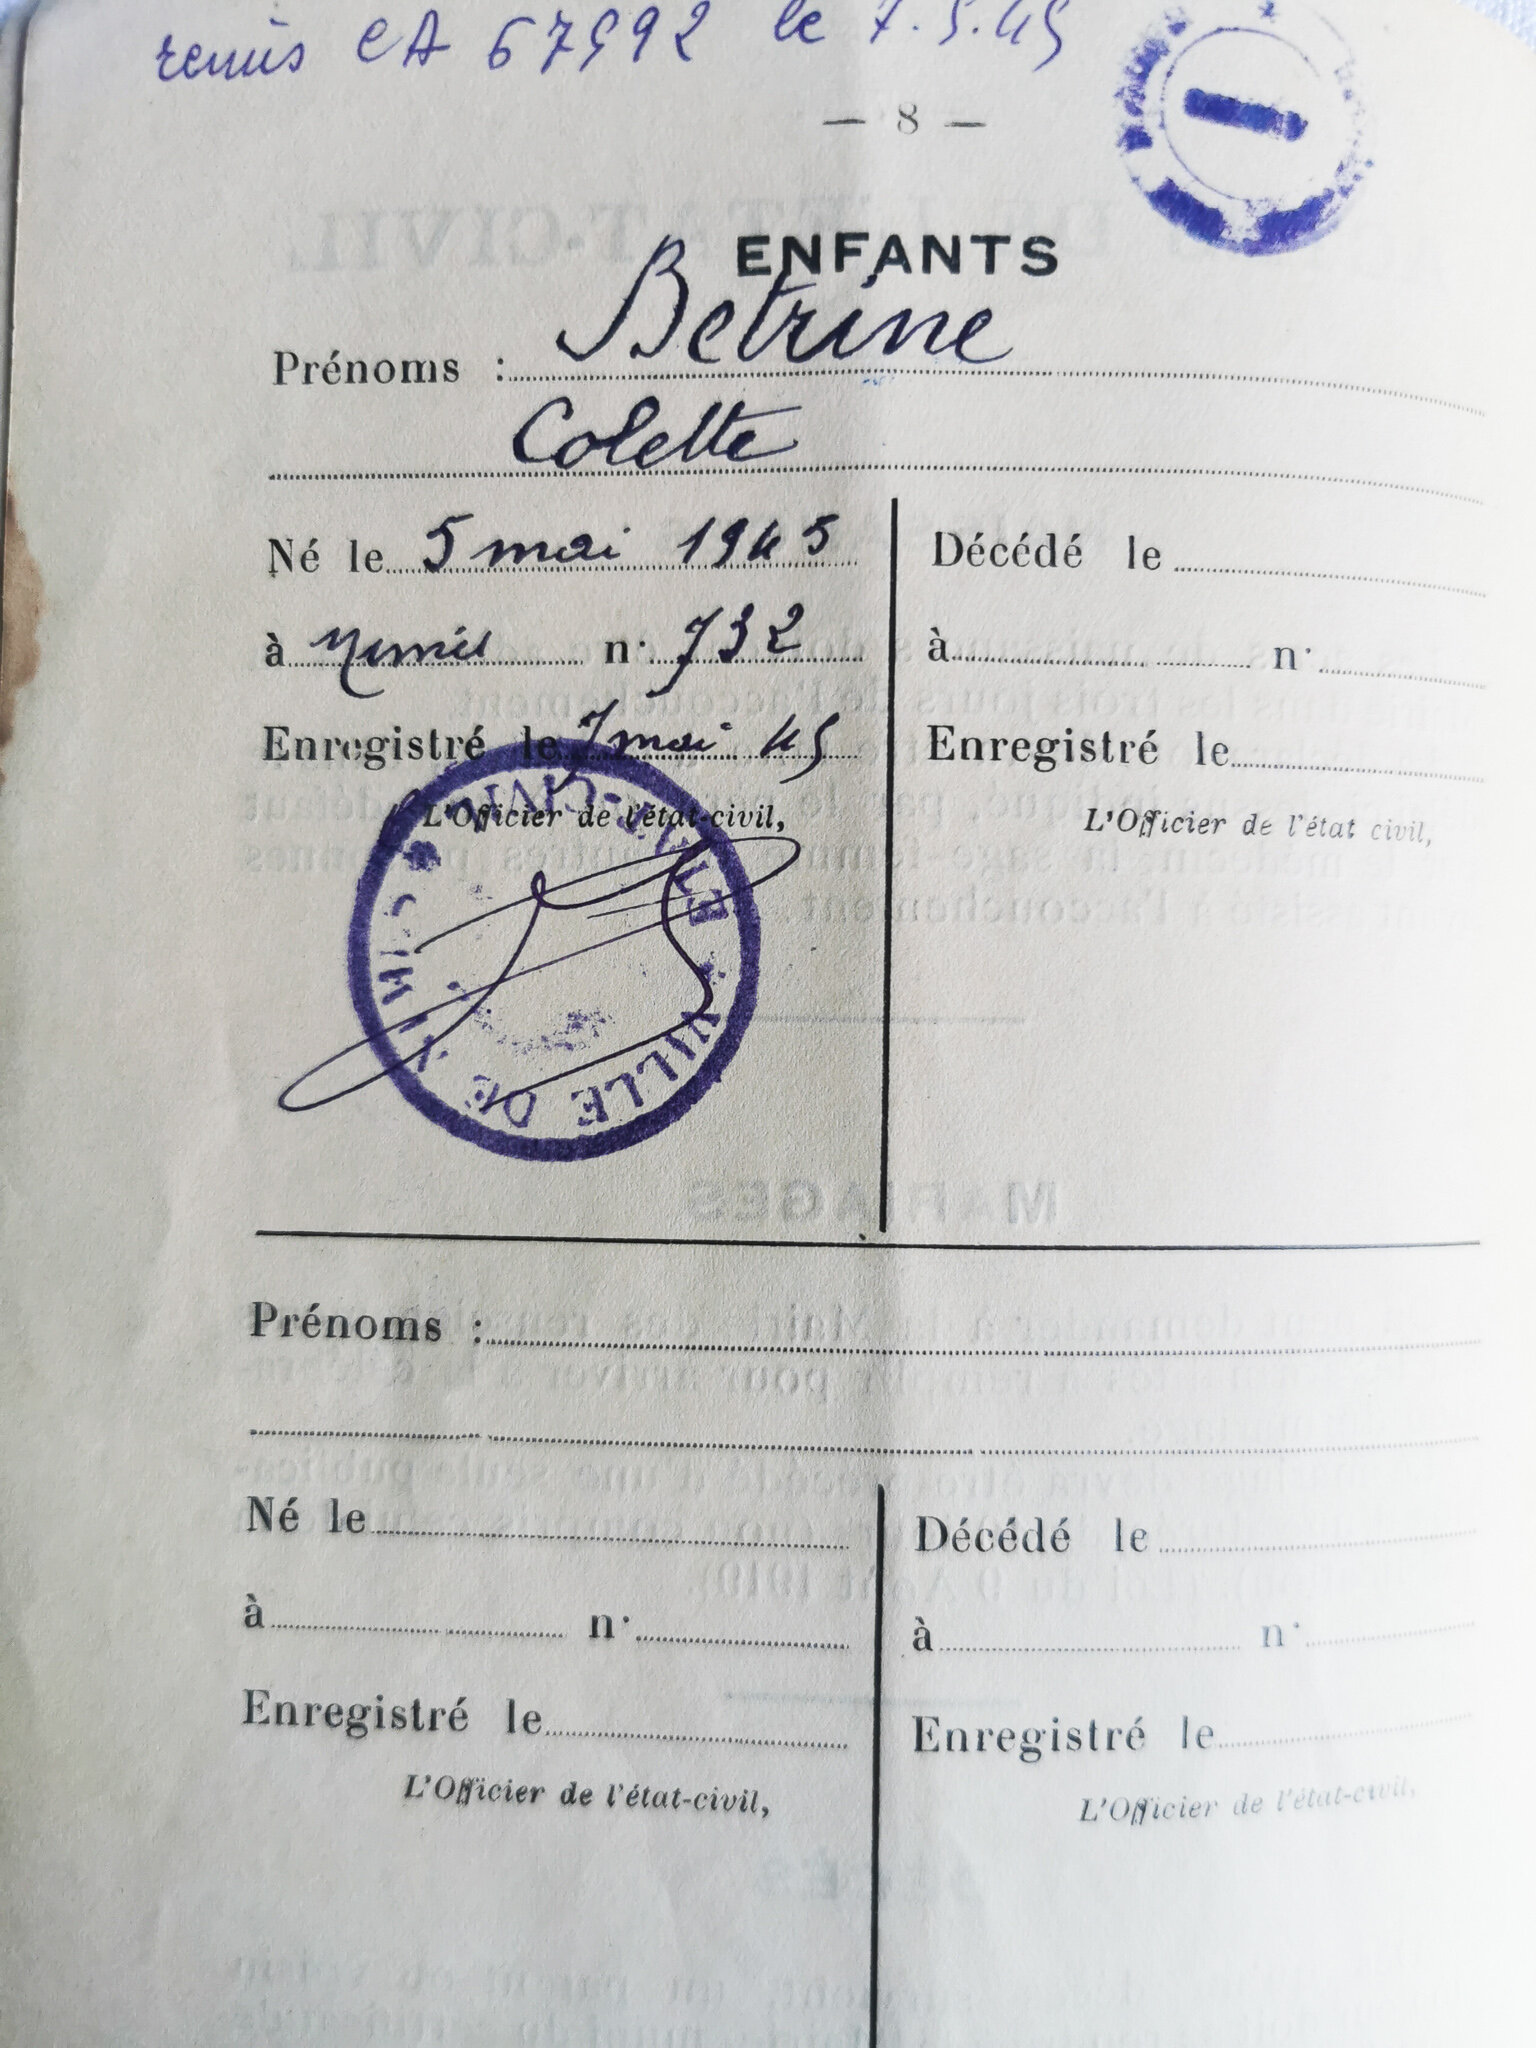 remis CA 67992 le 7.5.45
— 8 —
ENFANTS
Prénoms : Betrine
Colette
Né le 5 mai 1945
à n° 732
Enregistré le 7 mai 45
L'Officier de l'état-civil,
VILLE DE
Décédé le
à n°
Enregistré le
L'Officier de l'état civil,
Prénoms :
Né le
à n°
Enregistré le
L'Officier de l'état-civil,
Décédé le
à n°
Enregistré le
L'Officier de l'état-civil,